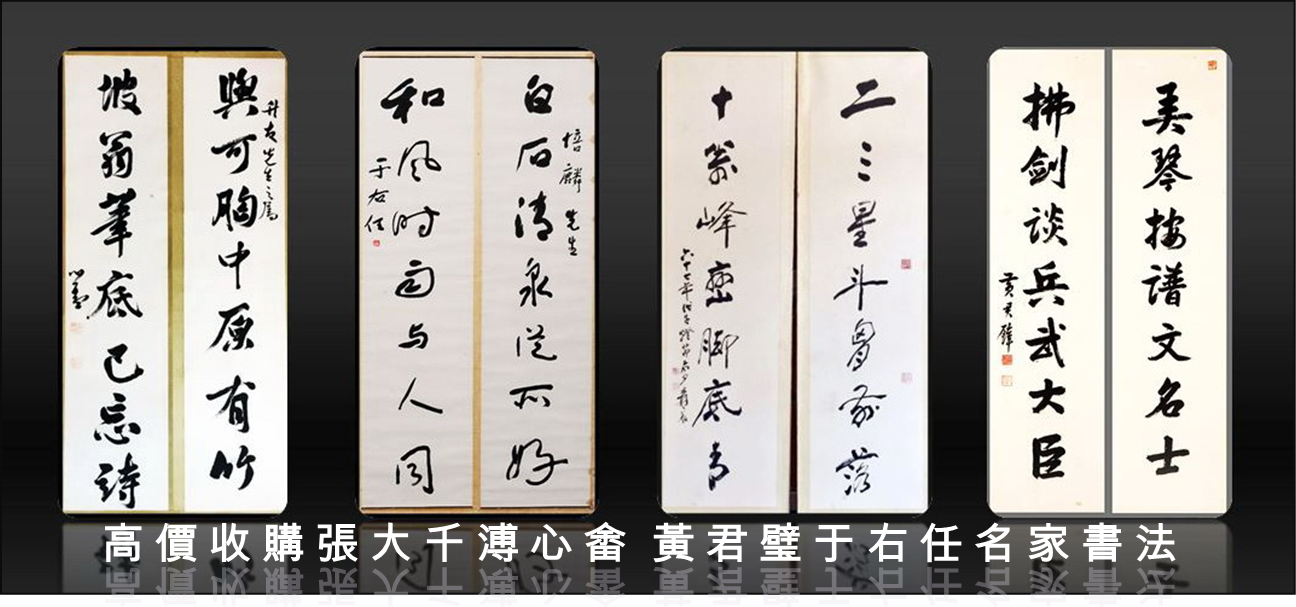 與可胸中原有竹
先生之屬
坡翁筆底已忘詩
心畬
白石清泉從所好
培麟先生
和風時雨与人同
于右任
二三星斗胸前落
十萬峰巒腳底青
美琴按谱文名士
拂剑谈兵武大臣
黃君璧
高價收購張大千溥心畬 黃君璧于右任名家書法